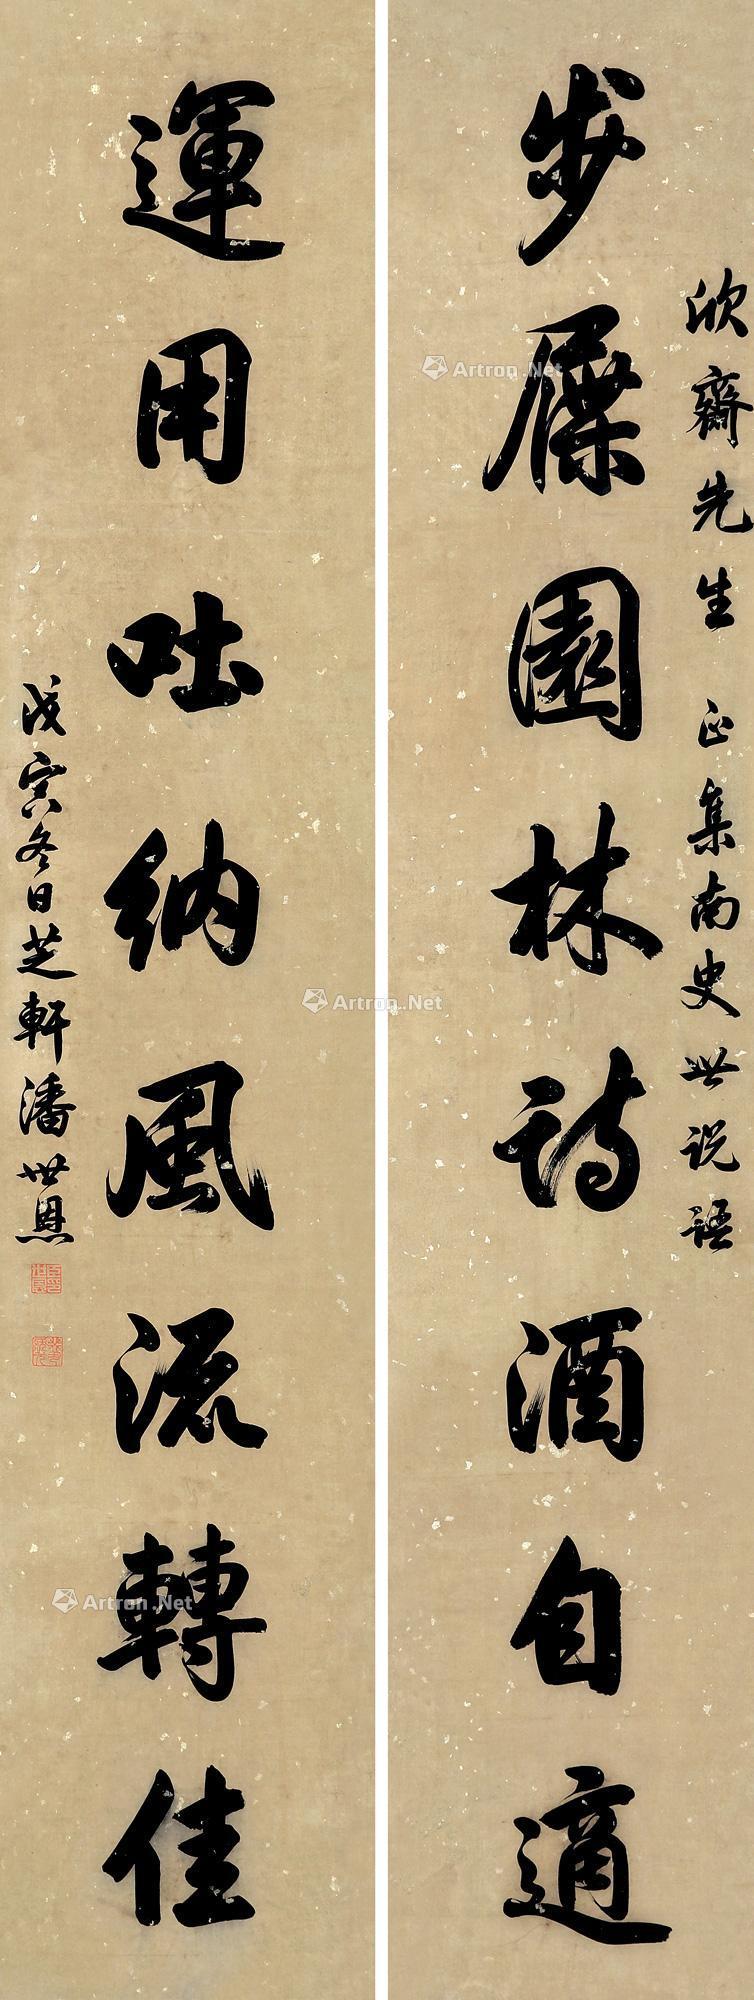 欣齋先生 正集南史世說語
步屧園林詩酒自適
運用吐納風流轉佳
戊寅冬日芝軒潘世恩
Artron.Net
Artron.Net
Artron.Net